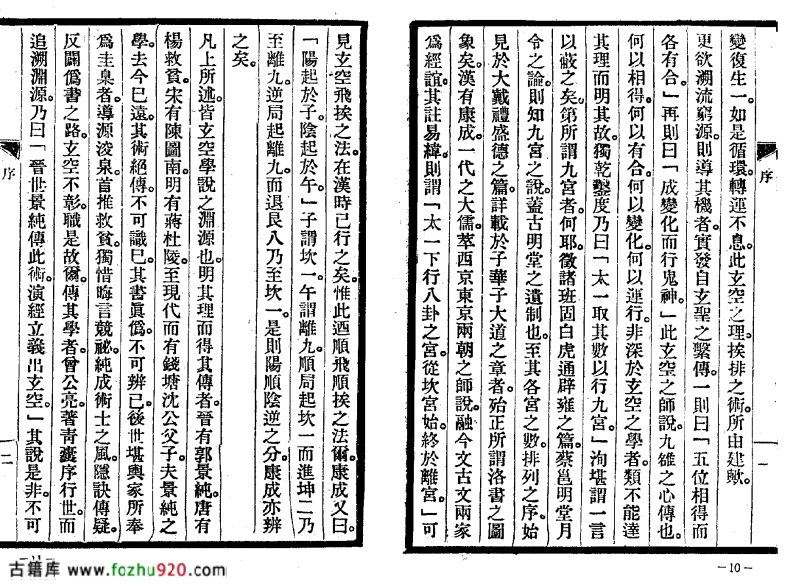 變復生一如是循環轉運不息。此玄空之理。挨排之術。所由建歟。
更欲溯流窮源。則導其機者。實發自玄聖之繫傳。一則曰「五位相得而
各有合」再則曰「成變化而行鬼神」此玄空之師說。九雉之心傳也。
何以相得。何以有合。何以變化。何以運行。非深於玄空之學者。類不能達
其理而明其故。獨乾鑿度乃曰「太一取其數以行九宮」洵堪謂一言
以蔽之矣。第所謂九宮者何耶。徵諸班固白虎通辟雍之篇。蔡邕明堂月
令之論。則知九宮之說。蓋古明堂之遺制也。至其各宮之數。排列之序。始
見於大戴禮盛德之篇。詳載於子華子大道之章者。殆正所謂洛書之圖
象矣。漢有康成。一代之大儒。萃西京東京兩朝之師說。融今文古文兩家
爲經誼。其註易緯則謂「太一下行八卦之宮。從坎宮始。終於離宮。」可
序
一
—10—
見玄空飛挨之法。在漢時已行之矣。惟此迺順飛順挨之法爾。康成又曰。
「陽起於子。陰起於午。」子謂坎一。午謂離九。順局起坎一而進坤二。乃
至離九。逆局起離九。而退艮八。乃至坎一。是則陽順陰逆之分。康成亦辨
之矣。
凡上所述。皆玄空學說之淵源也。明其理而得其傳者。晉有郭景純。唐有
楊救貧。宋有陳圖南。明有蔣杜陵。至現代而有錢塘沈公父子。夫景純之
學。去今巳遠。其術絕傳。不可識巳。其書眞僞。不可辨巳。後世堪輿家所奉
爲圭臬者。導源浚泉。首推救貧。獨惜晦言競祕。純成術士之風。隱訣傳疑。
反闢僞書之路。玄空不彰。職是故爾。傳其學者。曾公亮。著靑囊序行世。而
追溯淵源。乃曰「晉世景純傳此術。演經立義出玄空。」其說是非。不可
序
二
古籍库 www.fozhu920.com